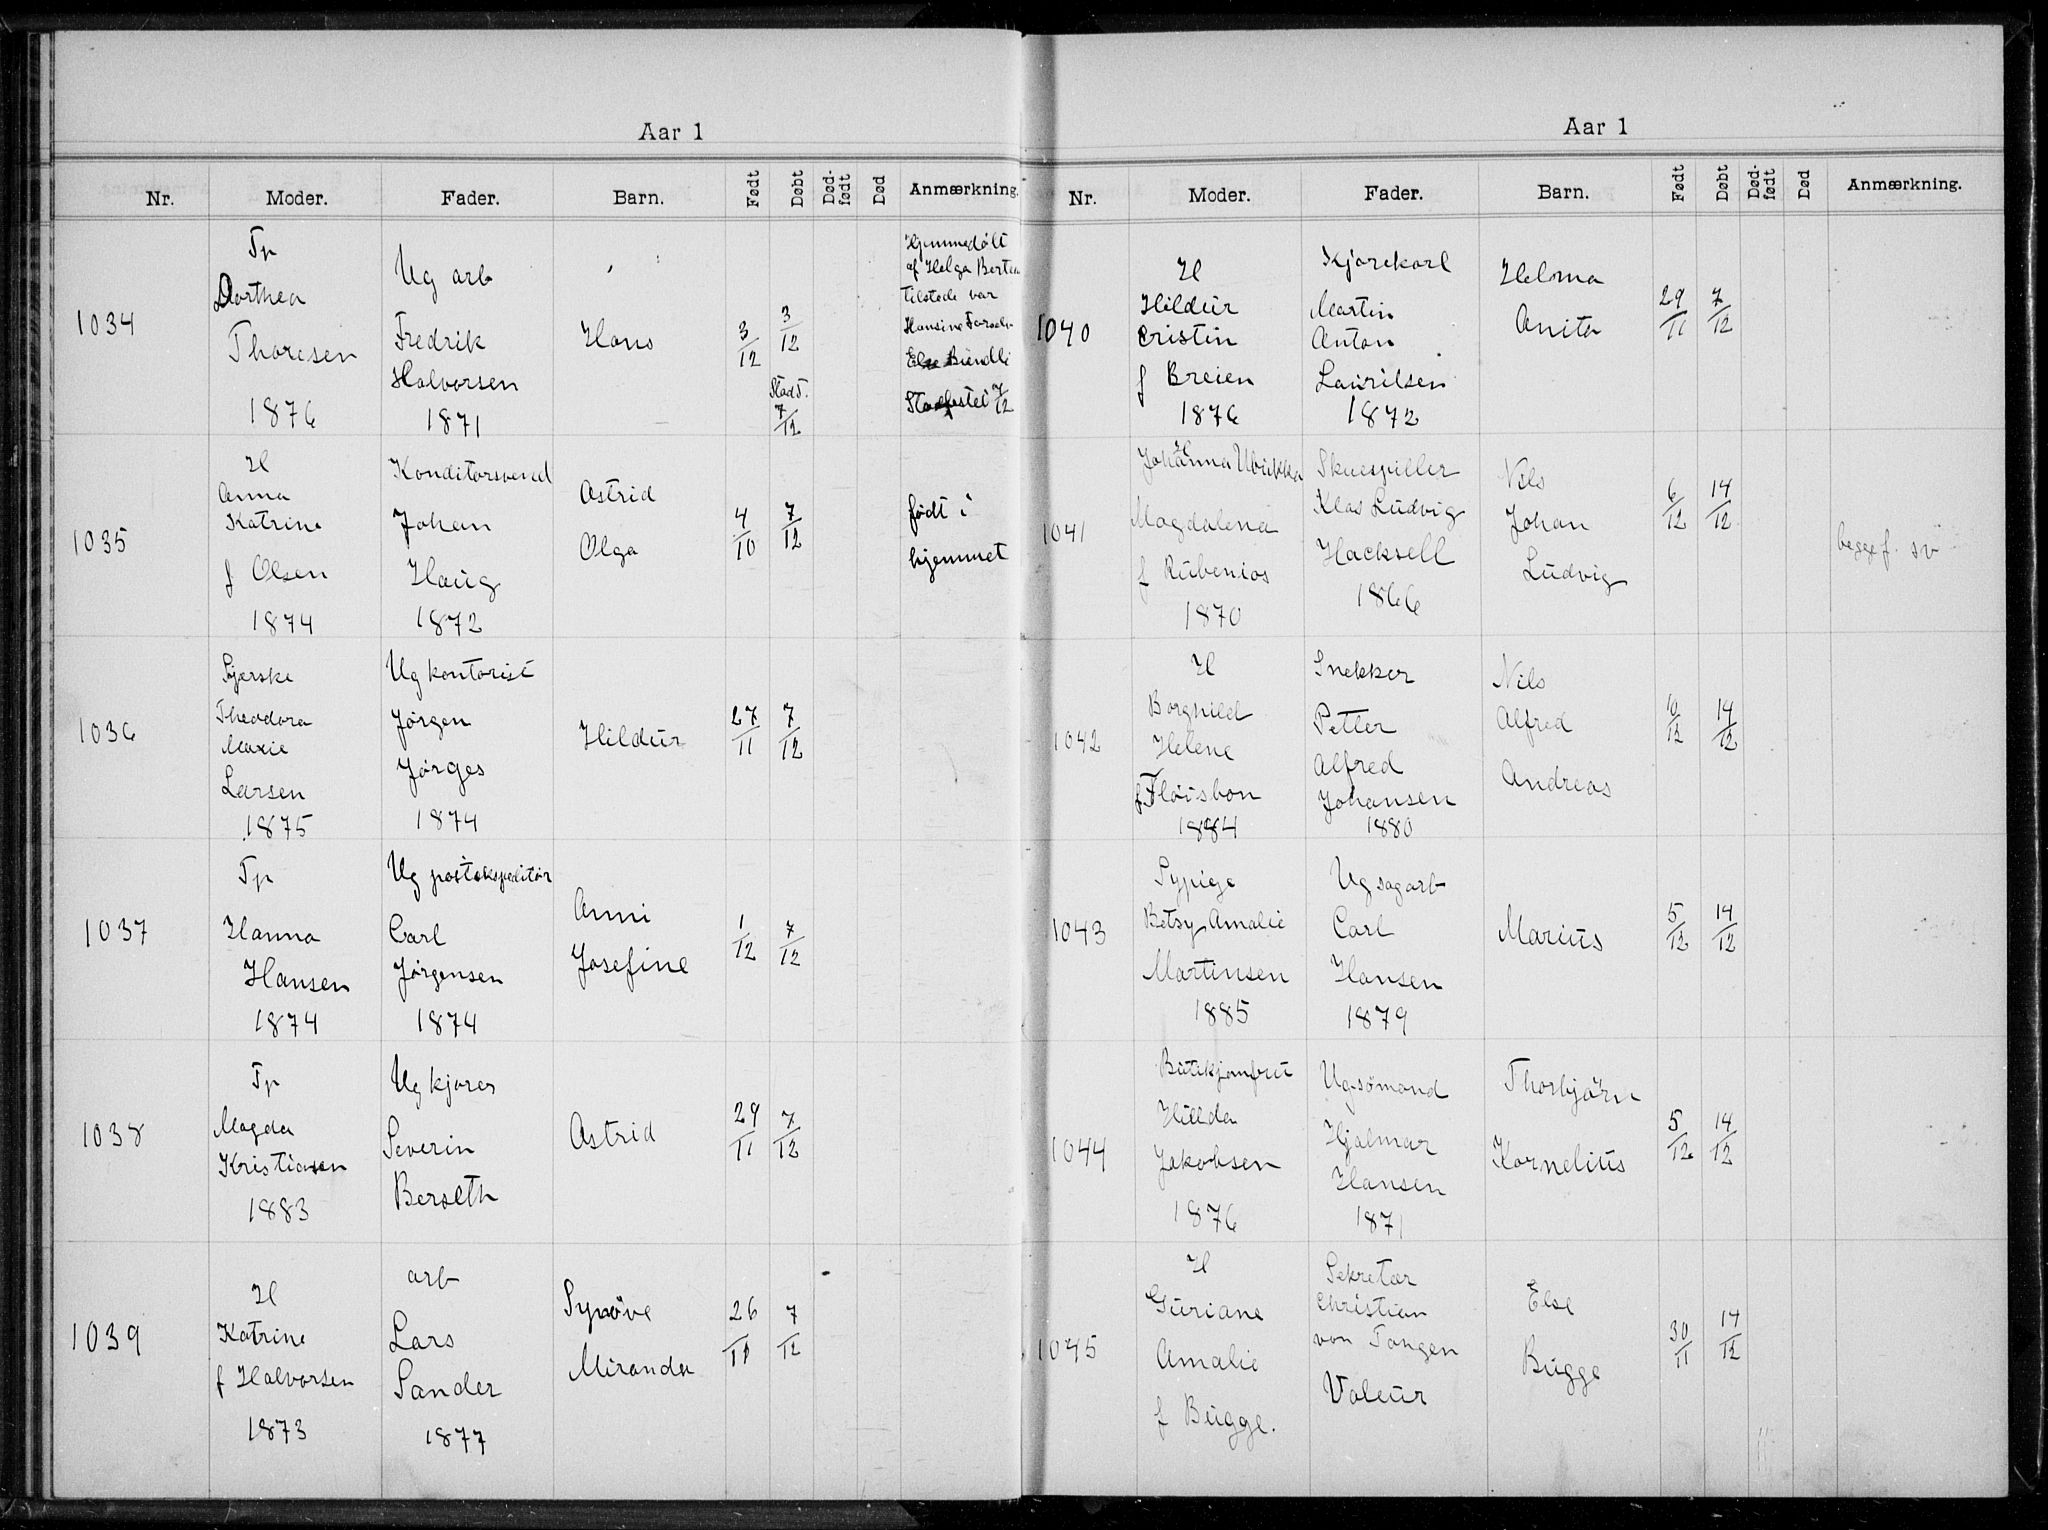 Aar 1
Nr. Moder. Fader. Barn. Født Døbt Død-født Død Anmærkning.
1034
Tp
Dorthea
Thoresen
1876
Ug arb
Fredrik
Halvorsen
1871
Hans
3/12
3/12
Stadf.
7/12
Hjemmedøbt
af Helga
tilstede var
Hansine
Else
7/12
1035
H
Anna
Katrine
f Olsen
1874
Konditorsvend
Johan
Haug
1872
Astrid
Olga
4/10
7/12
født i
hjemmet
1036
Syerske
Theodora
Marie
Larsen
1875
Ug kontorist
Jørgen
Jørges
1874
Hildur
27/11
7/12
1037
Tp
Hanna
Hansen
1874
Ug postekspeditør
Carl
Jørgensen
1874
Anni
Josefine
1/12
7/12
1038
Tp
Magda
Kristiansen
1883
Ug kjører
Severin
Berseth
Astrid
29/11
7/12
1039
H
Katrine
f Halvorsen
1873
arb
Lars
Sander
1877
Synöve
Miranda
26/11
7/12
Aar 1
Nr. Moder. Fader. Barn. Født Døbt Død-født Død Anmærkning.
1040
H
Hildur
Cristin
f Breien
1876
Kjørekarl
Martin
Anton
Lauritsen
1872
Helma
Anita
29/11
7/12
1041
H
Johanna
Magdalena
f Rubenios
1870
Skuespiller
Klas Ludvig
Hacksell
1866
Nils
Johan
Ludvig
6/12
14/12
begge f. sv
1042
H
Borghild
Helene
f Floisbon
1884
Snekker
Petter
Alfred
Johansen
1880
Nils
Alfred
Andreas
10/12
14/12
1043
Sypige
Betsy Amalie
Martinsen
1885
Ug sagarb
Carl
Hansen
1879
Marius
5/12
14/12
1044
Butikjomfru
Hilda
Jakobsen
1876
Ug sömand
Hjalmar
Hansen
1871
Thorbjörn
Kornelius
5/12
14/12
1045
H
Guriane
Amalie
f Bugge.
Sekretær
Christian
von Tangen
Valeur
Else
Bugge
30/11
14/12